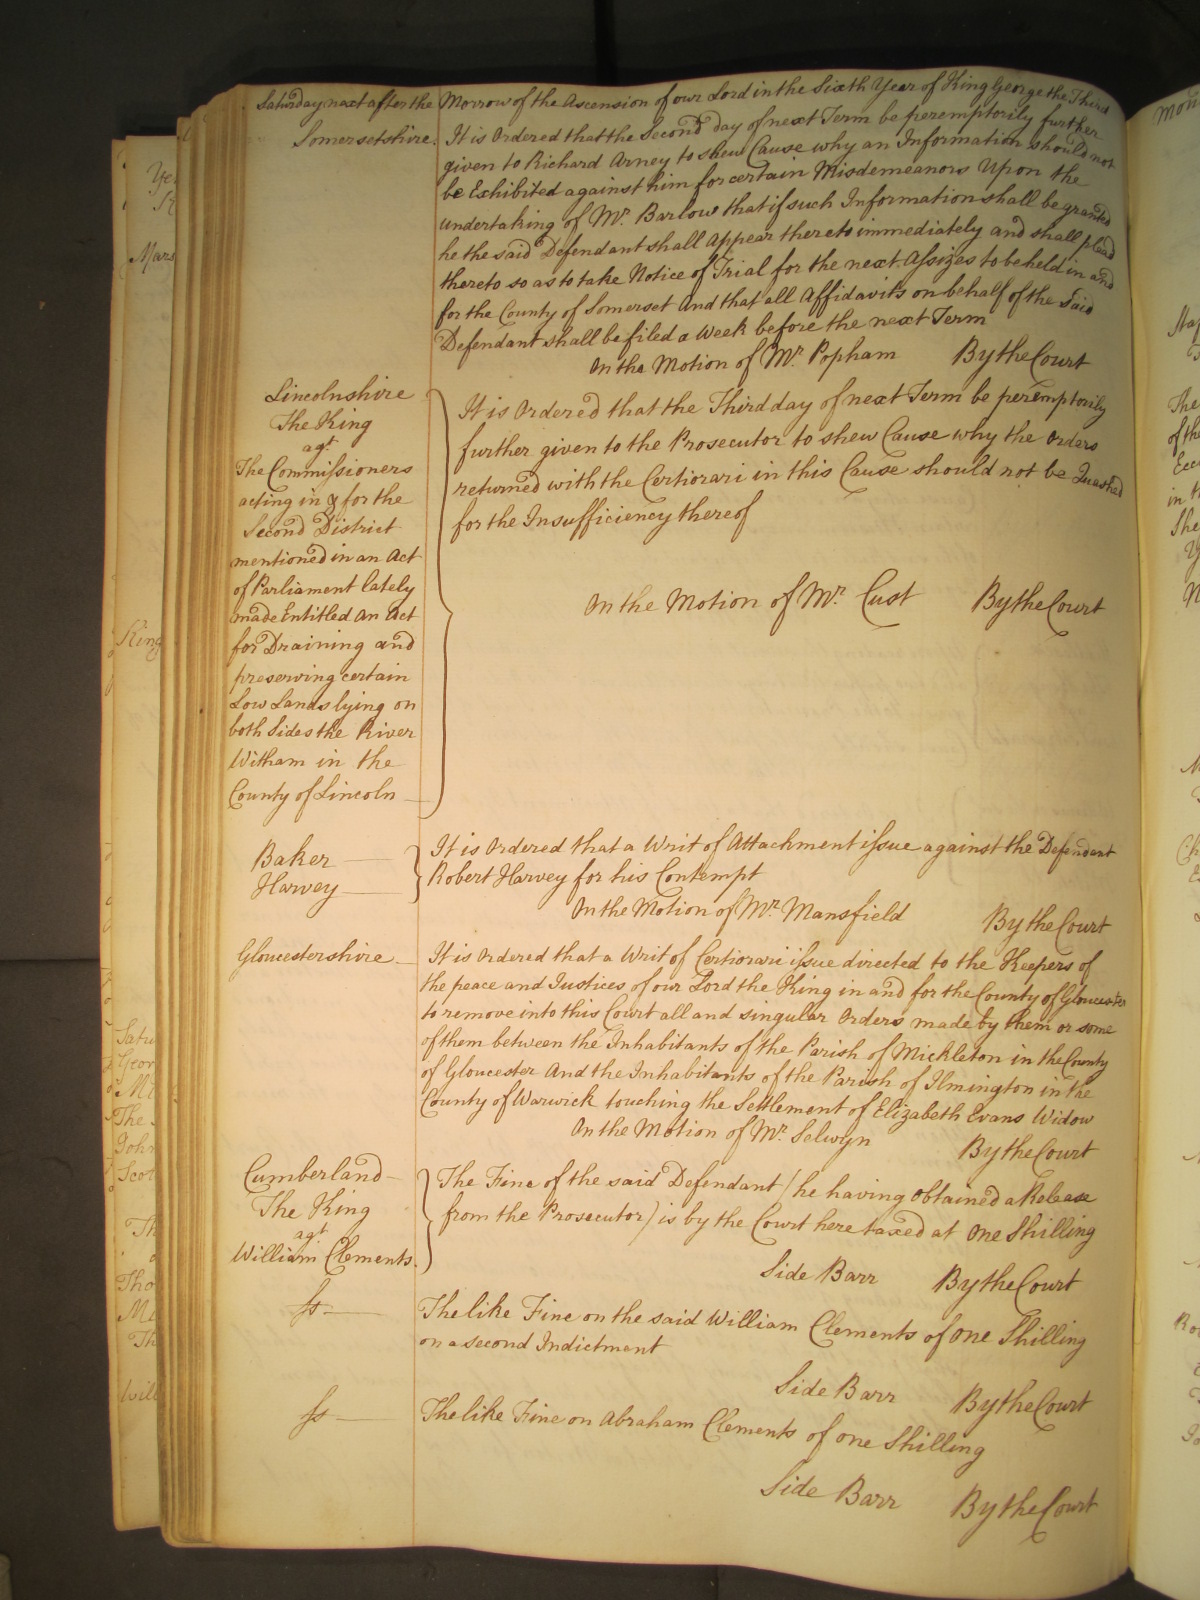 Saturday next after the Morrow of the Ascension of our Lord in the Sixth Year of King George the Third
Somersetshire. It is Ordered that the Second day of next Term be peremptorily further
given to Richard Arney to shew Cause why an Information should not
be Exhibited against him for certain Misdemeanors Upon the
undertaking of Mr. Barlow that if such Information shall be granted
he the said Defendant shall Appear thereto immediately and shall plead
thereto so as to take Notice of Trial for the next Assizes to be held in and
for the County of Somerset And that all Affidavits on behalf of the Said
Defendant shall be filed a Week before the next Term
On the Motion of Mr. Popham By the Court
Lincolnshire
The King
agt.
The Commissioners
acting in & for the
Second District
mentioned in an Act
of Parliament lately
made Entitled An Act
for Draining and
preserving certain
Low Lands lying on
both Sides the River
Witham in the
County of Lincoln
It is Ordered that the Third day of next Term be peremptorily
further given to the Prosecutor to shew Cause why the Orders
returned with the Certiorari in this Cause should not be Quashed
for the Insufficiency thereof
On the Motion of Mr. Cust By the Court
Baker
Harvey
It is Ordered that a Writ of Attachment issue against the Defendant
Robert Harvey for his Contempt
On the Motion of Mr. Mansfield By the Court
Gloucestershire It is Ordered that a Writ of Certiorari issue directed to the Keepers of
the peace and Justices of our Lord the King in and for the County of Gloucester
to remove into this Court all and singular Orders made by them or some
of them between the Inhabitants of the Parish of Mickleton in the County
of Gloucester And the Inhabitants of the Parish of Ilmington in the
County of Warwick touching the Settlement of Elizabeth Evans Widow
On the Motion of Mr. Selwyn By the Court
Cumberland
The King
agt.
William Clements.
The Fine of the said Defendant (he having obtained a Release
from the Prosecutor) is by the Court here taxed at One Shilling
Side Barr By the Court
ss The like Fine on the said William Clements of one Shilling
on a second Indictment
Side Barr By the Court
ss The like Fine on Abraham Clements of one Shilling
Side Barr By the Court